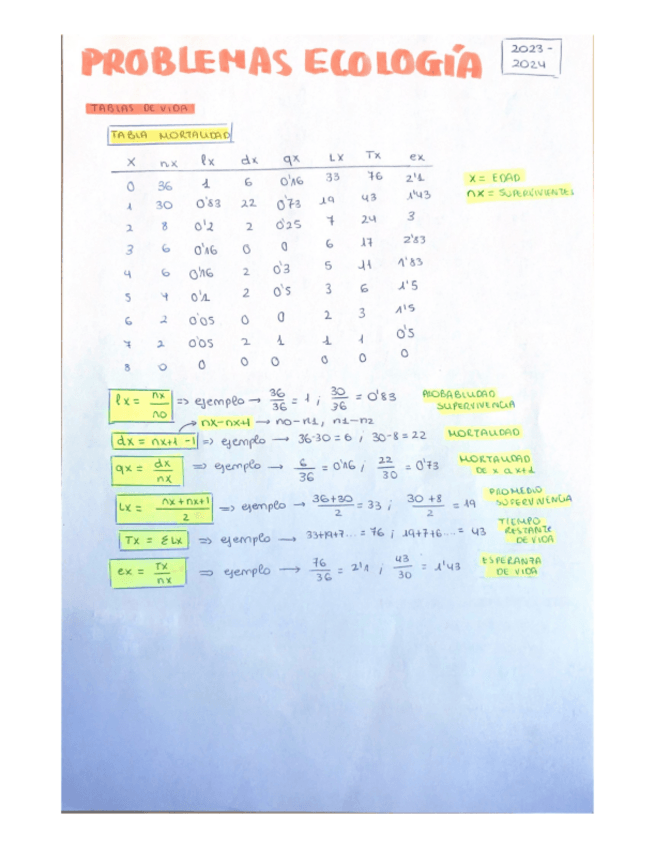 PROBLEMAS ECOLOGÍA
2023-
2024
TABLAS DE VIDA
TABLA MORTALIDAD
x nx lx dx qx Lx Tx ex
0 36 1 6 0'16 33 76 2'1
1 30 0'83 22 0'73 19 43 1'43
2 8 0'2 2 0'25 7 24 3
3 6 0'16 0 0 6 17 2'83
4 6 0'16 2 0'3 5 11 1'83
5 4 0'1 2 0'5 3 6 1'5
6 2 0'05 0 0 2 3 1'5
7 2 0'05 2 1 1 1 0'5
8 0 0 0 0 0 0 0
x = EDAD
nx = SUPERVIVIENTES
lx = nx/no => ejemplo → 36/36 = 1 ; 30/36 = 0'83 PROBABILIDAD SUPERVIVENCIA
→ nx-nx+1 → no-n1, n1-n2
dx = nx+1 -1 => ejemplo → 36-30 = 6 ; 30-8 = 22 MORTALIDAD
qx = dx/nx => ejemplo → 6/36 = 0'16 ; 22/30 = 0'73 MORTALIDAD DE x a x+1
Lx = nx+nx+1/2 => ejemplo → 36+30/2 = 33 ; 30+8/2 = 19 PROMEDIO SUPERVIVENCIA
Tx = ΣLx => ejemplo → 33+19+7... = 76 ; 19+7+6... = 43 TIEMPO RESTANTE DE VIDA
ex = Tx/nx => ejemplo → 76/36 = 2'1 ; 43/30 = 1'43 ESPERANZA DE VIDA